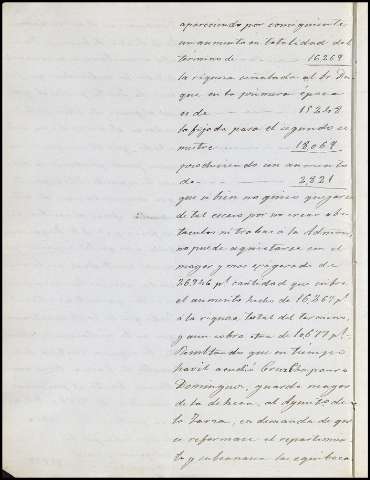 apareciendo por consiguiente
un aumento en totalidad del
termino de 16,269
la riqueza señalada al Sr Du
que en la primera época
es de 15248
la fijada para el segundo se
mestre 18,069
produciendo un aumento
de 2,821
que si bien no quiso quejarse
de tal esceso por no crear obs
taculos ni trabas a la Admon,
no puede aquietarse con el
mayor y mas exagerado de
26,946 pts cantidad que cubre
el aumento hecho de 16,269 pts
á la riqueza total del termino,
y aun sobra de 10,677 pts.
Resultando que en tiempo
havil acudió
Dominguez, guarda mayor
de la dehesa, al Ayunto de
la Zarza, en demanda de que
se reformase el repartimien
to y subsanara las equivoca